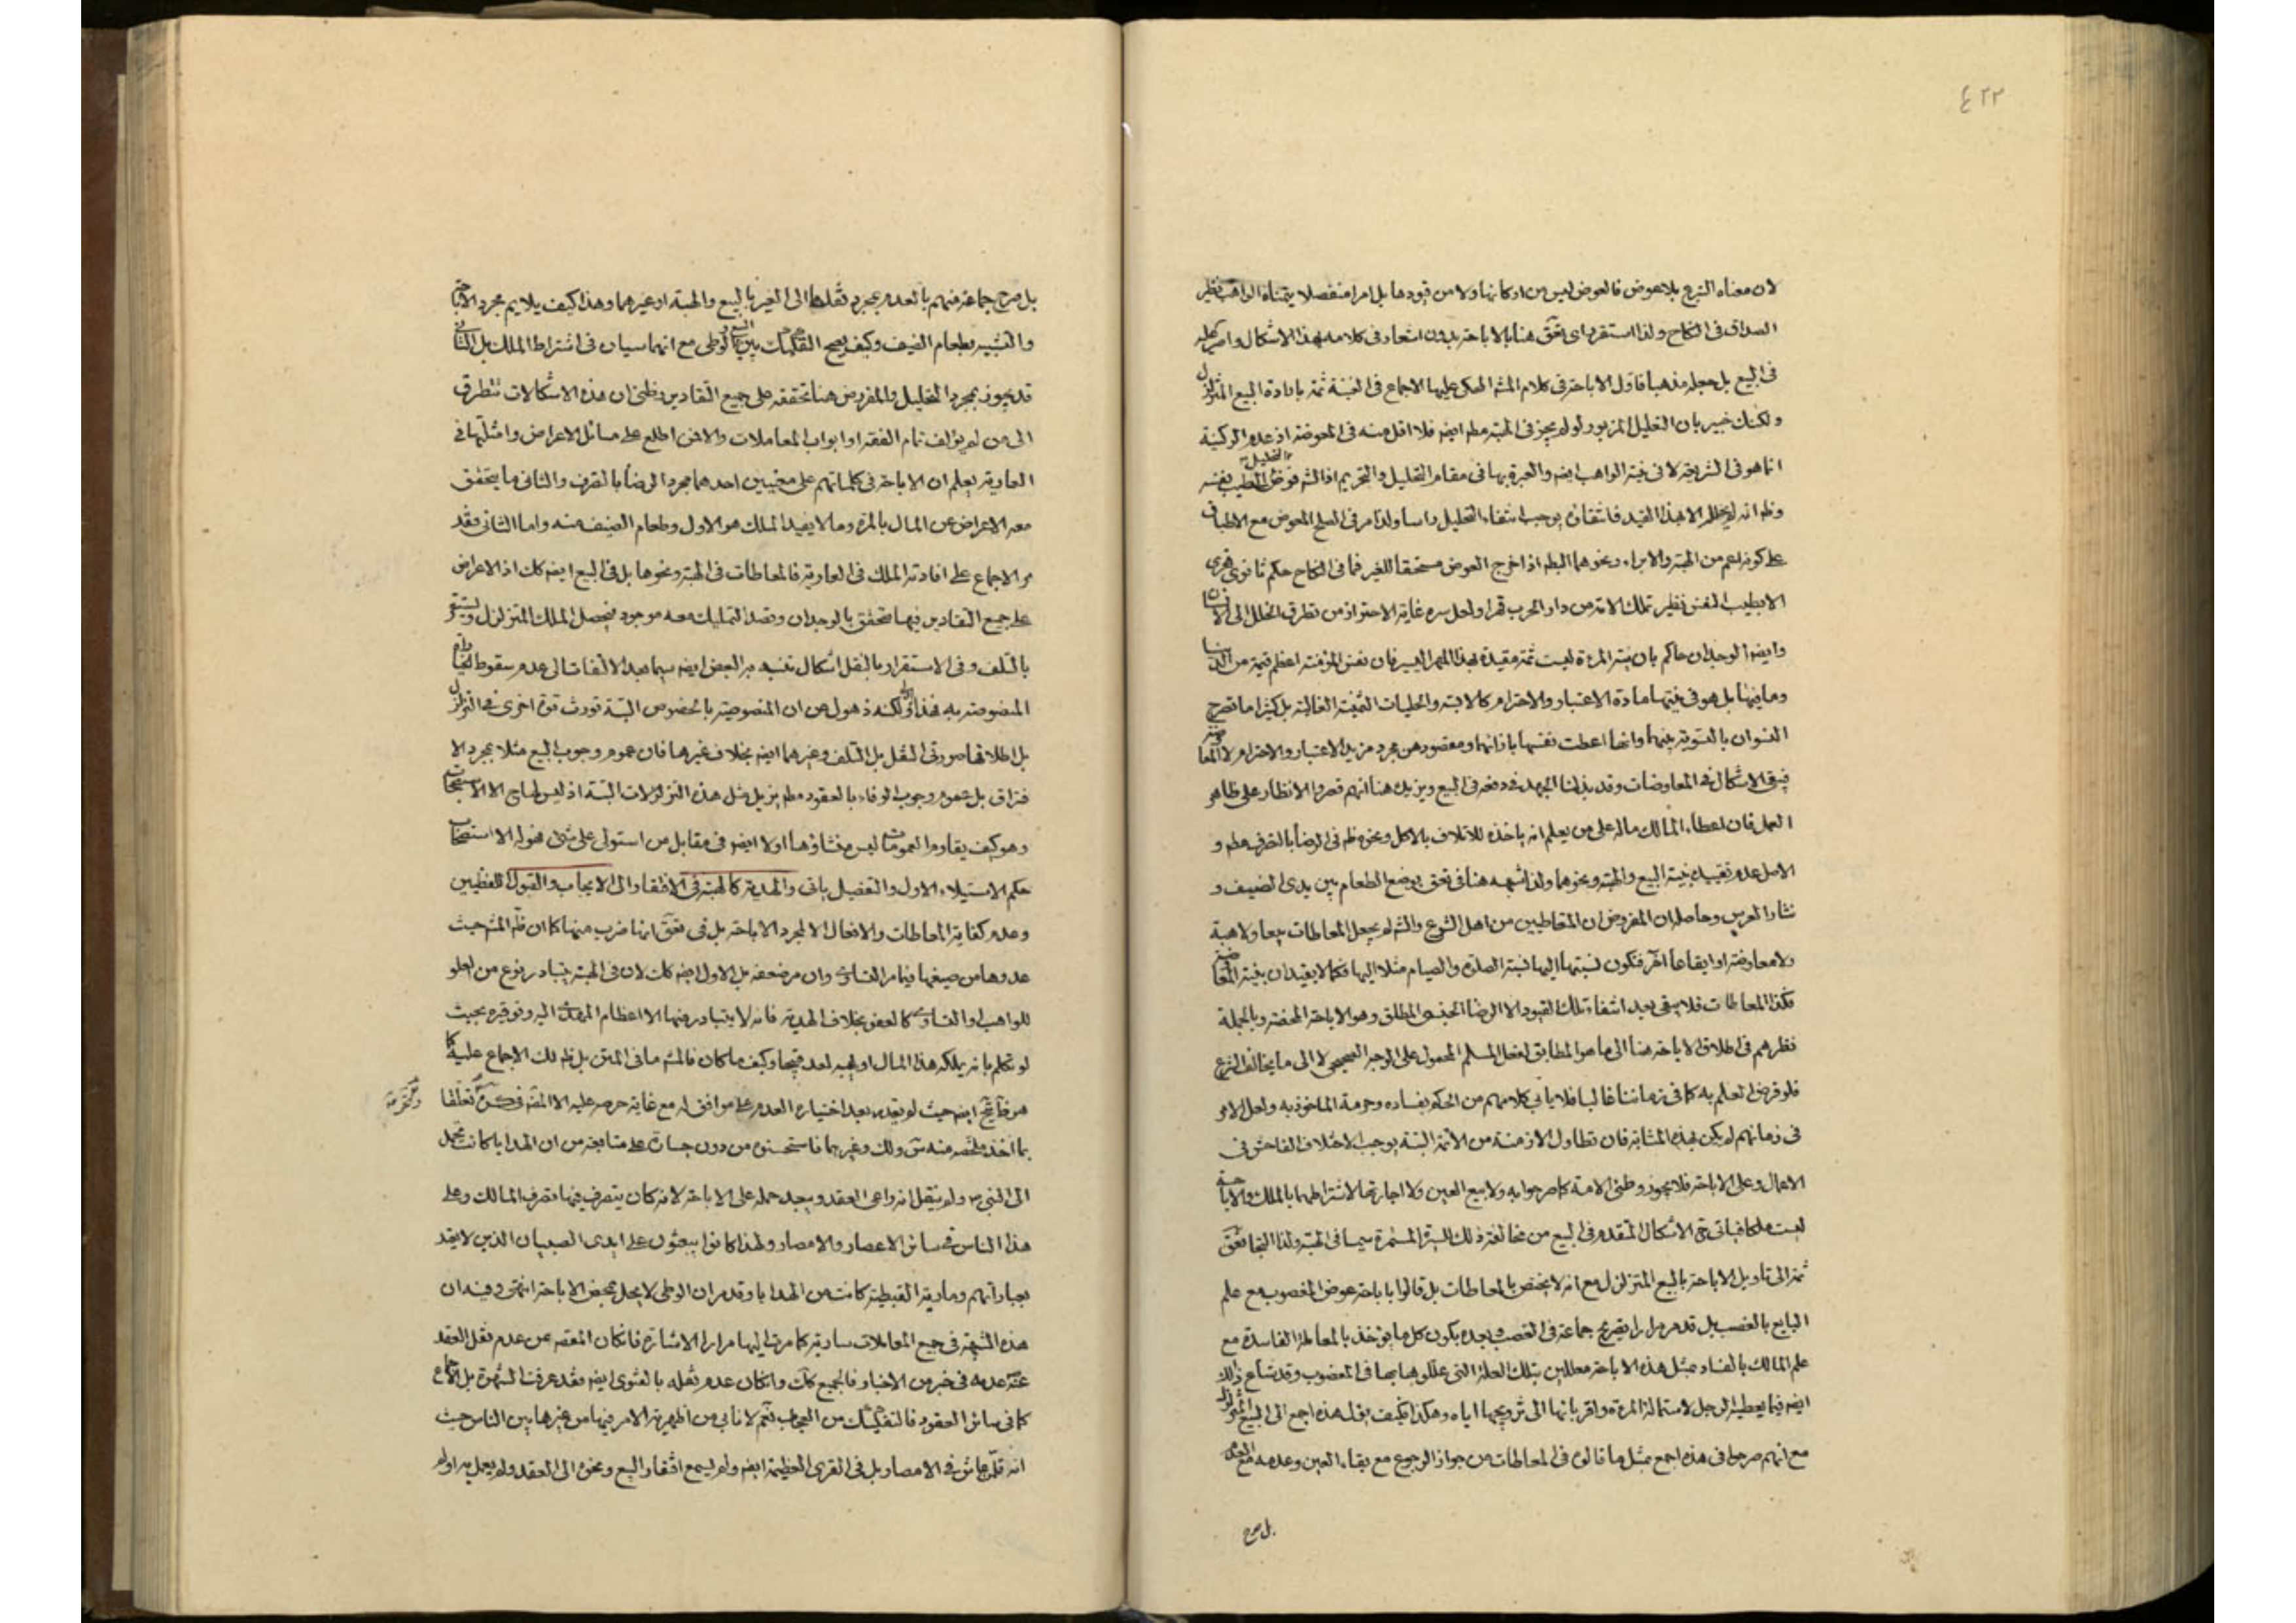 ٤٢٢
لان معناه التبرع بلا عوض فالعوض ليس من اركانها ولا من قيودها بل امر منفصل يتمناه الواهب نظير
الصداق في النكاح ولذا استقر راى تعق هنا بالاباحة بدون اشعار في كلامه بهذا الاشكال واصر عليه
في البيع بل جعله مذهبا فاول الاباحة في كلام المشه المحكى عليها الاجماع في الغنية ثمة بارادة البيع المتزلزل
ولكنك خبير بان التعليل المزبور لو لم يجز في الهبة مطم ايضه فلا اقل منه في المعوضة اذ عدم الركنية
انما هو في الشريعة لا في نية الواهب ايضه والعبرة بها في مقام التحليل والتحريم اذ الشه فوض التحليل بطيب نفسه
وظم انه لم يحلل الا بهذا القيد فانتفائه يوجب انتفاء التحليل راسا ولذا مر في الصلح المعوض مع الاطباق
على كونه اعم من الهبة والابراء ونحوهما البطه اذا خرج العوض مستحقا للغير فما في النكاح حكم ثانوى قهرى
لا بطيب النفس نظير تملك الامة من دار الحرب قهرا ولعل سره غاية الاحتراز من تطرق الخلل الى الانساب
وايضه الوجدان حاكم بان نية المرءة ليست ثمة مقيدة بهذا المهر اليسير فان نفس المؤمنة اعظم قيمة من الدنيا
وما فيها بل هو في نيتها مادة الاعتبار والاحترام كالالبسة والحليات الثمينة الغالبة بل كثيرا ما تصرح
النسوان بالتسوية بينهما وانها اعطت نفسها باذائها ومقصودهن مجرد مزيد الاعتبار والاحترام لا المعاوضة
فبقى الاشكال في المعاوضات وقد بذلنا الجهد في دفعه في البيع ويزيدك هنا انهم قصروا الانظار على ظاهر
العمل فان اعطاء المالك ماله على من يعلم انه ياخذه للاتلاف بالاكل ونحوه ظه في الرضا بالتصرف مطم و
الاصل عدم تقييده بنية البيع والهبة ونحوها ولذا شبهه هنا في تعق بوضع الطعام بين يدى الضيف و
نثار العرس وحاصله ان المفروض ان المتعاطيين من اهل الشرع والشه لم يجعل المعاطات بيعا ولا هبة
ولا معاوضة او ايقاعا اخر فتكون نسبتها اليها نسبة الصلوة والصيام مثلا اليها فكما لا يقيدان بنية المعاوضة
فكذا المعاطات فلا يبقى بعد انتفاء تلك القيود الا الرضا الجنسى المطلق وهو الاباحة المحضة وبالجملة
نظرهم في اطلاق الاباحة هنا الى ما هو المطابق لفعل المسلم المحمول على الوجه الصحيح لا الى ما يخالف الشرع
فلو فرض العلم به كما في زماننا غالبا فلا يابى كلامهم من الحكم بفساده وحرمة الماخوذ به ولعل الامر
في زمانهم لم يكن بهذه المثابة فان تطاول الازمنة من الائمة البتة يوجب الاختلاف الفاحش في
الاعمال وعلى الاباحة فلا يجوز وطئ الامة كما صرحوا به ولا بيع العين ولا اجارتها لاشتراطها بالملك والاباحة
ليست ملكا فياتى ح الاشكال المتقدم في البيع من مخالفة ذلك للسيرة المستمرة سيما في الهبة ولذا التجا تعق
ثمة الى تاويل الاباحة بالبيع المتزلزل مع انه لا يختص بالمعاطات بل قالوا باباحة عوض المغصوب مع علم
البايع بالغصب بل قد مر مرارا تصريح جماعة في الغصب وبعده بكون كل ما يؤخذ بالمعاملة الفاسدة مع
علم المالك بالفساد بمثل هذه الاباحة معللين بتلك العلة التى عللوها بها في المغصوب وقد شاع ذلك
ايضه فيما يعطيه الرجل لاستمالة المرءة واقربائها الى تزويجها اياه وهكذا فكيف يؤل هذه اجمع الى البيع المتزلزل
مع انهم صرحوا في هذه اجمع بمثل ما قالوه في المعاطات من جواز الرجوع مع بقاء العين وعدمه مع العدم
بل صرح
بل صرح جماعة منهم بالعدم بمجرد نقلها الى الغير بالبيع والهبة او غيرهما وهذا كيف يلايم مجرد الاباحة
والتشبيه بطعام الضيف وكيف يصح التفكيك بين البيع والوطى مع انهما سيان في اشتراط الملك بل الثانى
قد يجوز بمجرد التحليل والمفروض هنا تحققه على جميع التقادير وظنى ان هذه الاشكالات تتطرق
الى من لم يؤلف تمام الفقه او ابواب المعاملات والا فمن اطلع على مسائل الاعراض وامثلتها في
العارية يعلم ان الاباحة في كلماتهم على معنيين احدهما مجرد الرضا بالتصرف والثانى ما يتحقق
معه الاعراض عن المال بالمرة وما لا يفيد الملك هو الاول وطعام الضيف منه واما الثانى فقد
مر الاجماع على افادته الملك في العارية فالمعاطات في الهبة ونحوها بل في البيع ايضه كك اذ الاعراض
على جميع التقادير فيها متحقق بالوجدان وقصد التمليك معه موجود فيحصل الملك المتزلزل ويستقر
بالتلف وفى الاستقرار بالنقل اشكال تنبه به البعض ايضه سيما بعد الالتفات الى عدم سقوط الخيار
المنصوصة به فهذا اولى لكنه ذهول من ان المنصوصية بالخصوص البتة تورث قوة اخرى في التزلزل
بل اطلاقها صورتى النقل بل التلف وغيرهما ايضه بخلاف غيرها فان عموم وجوب البيع مثلا بمجرد الا
فتراق بل عموم وجوب الوفاء بالعقود مطم يزيل مثل هذه التزلزلات البتة اذ ليس لها ح الا الاستصحاب
وهو كيف يقاوم العمومات ليس منشاؤها اولا ايضه في مقابل من استولى على شئ فهو له الا استصحاب
حكم الاستيلاء الاول والتفصيل ياتى والهدية كالهبة في الافتقار الى الايجاب والقبول اللفظيين
وعدم كفاية المعاطات والافعال الا لمجرد الاباحة بل في تعق انها ضرب منها كما ان ظه المشه حيث
عدوها من صيغها فيما مر التساوى وان مر ضعفه بل الاول ايضه كك لان في الهبة يتبادر نوع من العلو
للواهب او التساوى كالعفو بخلاف الهدية فانه لا يتبادر منها الا اعظام المهدى اليه وتوقيره بحيث
لو تكلم بانه يملكه هذا المال او يهبه لعد قبيحا وكيف ما كان فالمشه ما في المتن بل ظه لك الاجماع عليه كما
هو ايضه حيث لو يقدم بعد اختياره العدم على موافق له مع غاية حرصه عليه الا المقه في كره تعلقا
بما اخذ ملخصه منه س ولك وغيرهما فاستحسنوه من دون جسارة على متابعته من ان الهدايا كانت تحمل
الى النبى ص ولم ينقل انه راعى العقد ويبعد حمله على الاباحة لانه كان يتصرف فيها تصرف الملاك وعلى
هذا الناس في سائر الاعصار والامصار ولهذا كانوا يبعثون على ايدى الصبيان الذين لا يعتد
بعباراتهم ومارية القبطية كانت من الهدايا وقد مر ان الوطى لا يحل بمحض الاباحة انتهى وفيه ان
هذه الشبهة في جميع المعاملات سارية كما مرت اليها مرارا الاشارة فان كان المقصد من عدم نقل العقد
عنه عدمه في خبر من الاخبار فالجميع كك وان كان عدم نقله بالفتوى ايضه فقد عرفت الشهرة بل الاجماع
كما في سائر العقود فالتفكيك من العجاب نعم لا نابى من اظهرية الامر فيها من غيرها بين الناس حيث
انه قل ما شئ في الامصار بل في القرى العظيمة ايضه ولم يسمع افتقار البيع ونحوه الى العقد ولم يعمل به او لم